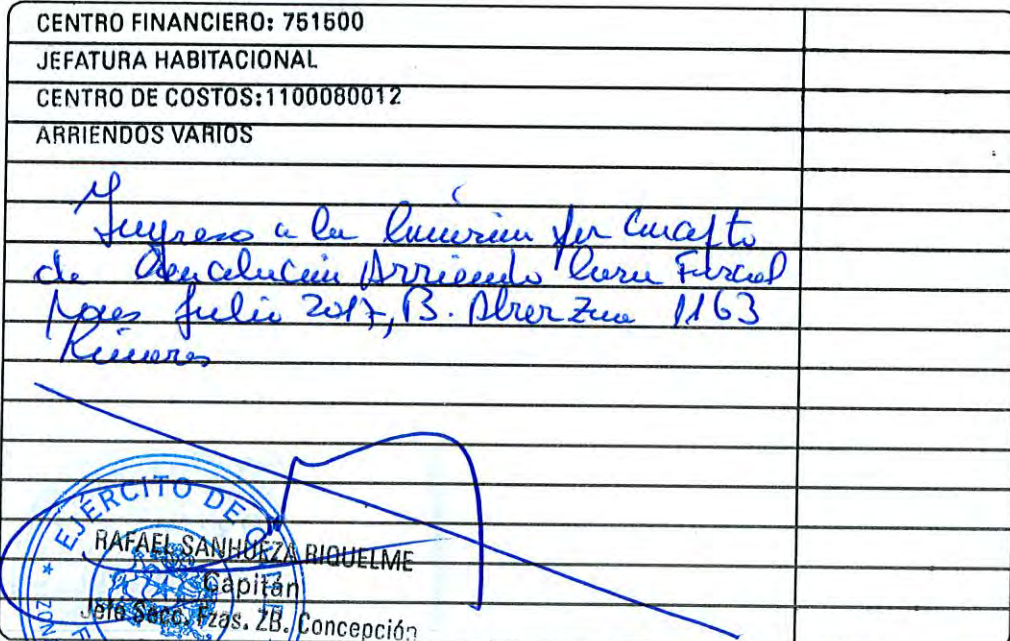 CENTRO FINANCIERO: 751500
JEFATURA HABITACIONAL
CENTRO DE COSTOS:1100080012
ARRIENDOS VARIOS
Ingreso a la por Concepto
de Arriendo Casa Fiscal
mes Julio 2017, B. 1163
Linares
EJÉRCITO DE
RAFAEL SANHUEZA RIQUELME
Capitán
Jefe Secc. Fzas. ZB. Concepción